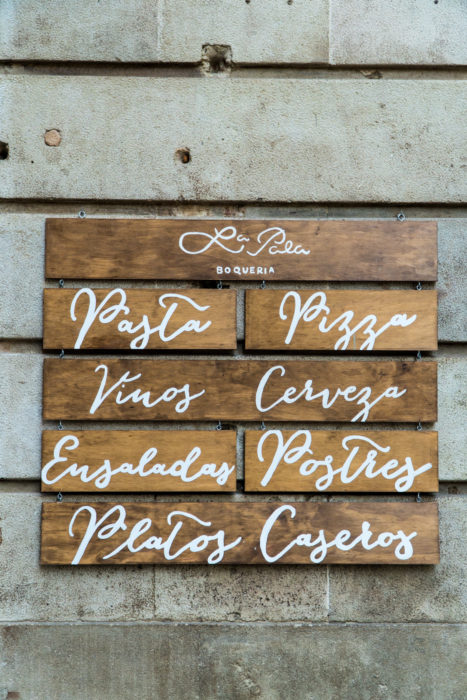 La Pala
BOQUERIA
Pasta Pizza
Vinos Cerveza
Ensaladas Postres
Platos Caseros